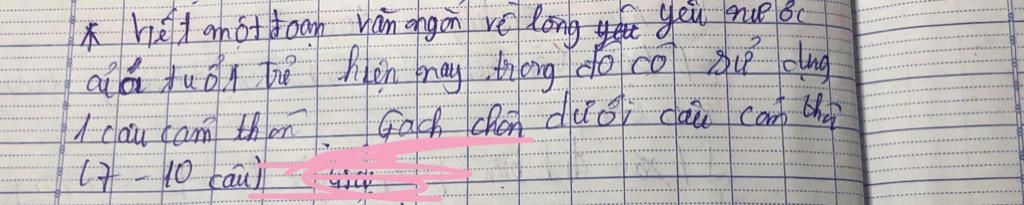 * Viết một đoạn văn ngắn về lòng yêu nước
của tuổi trẻ hiện nay trong đó có sử dụng
1 câu cảm thán Gạch chân dưới câu cảm thán
(7 - 10 câu)